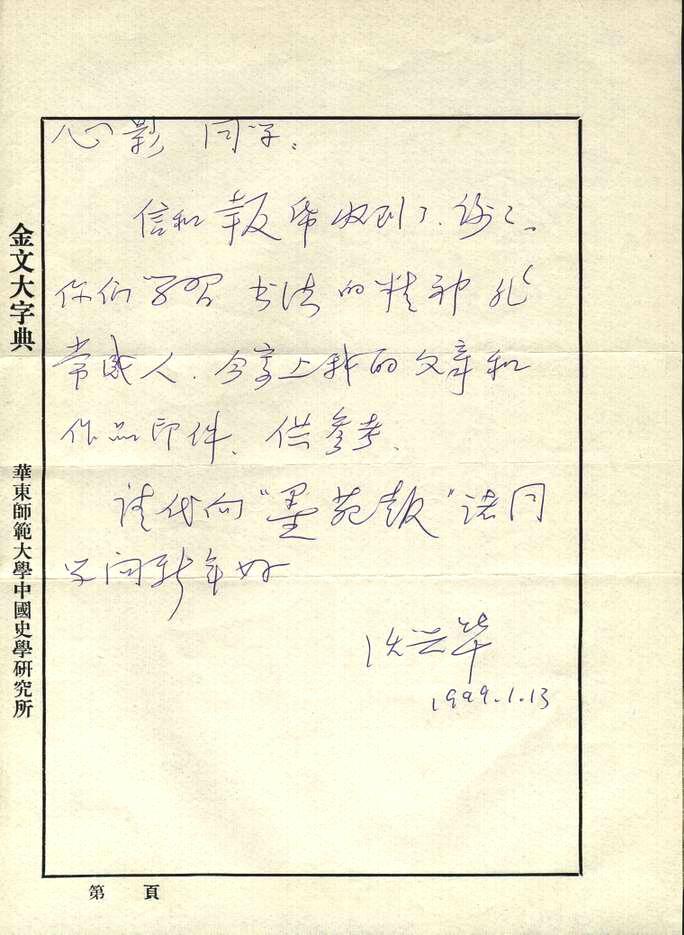 金文大字典
華東師範大學中國史學研究所
心影 同学:
信和報帋收到了.谢々。
你们学習书法的精神非
常感人.今寄上我的文章和
作品印件、供参考.
请代向"墨苑報"诸同
学问新年好
1999.1.13
第 頁